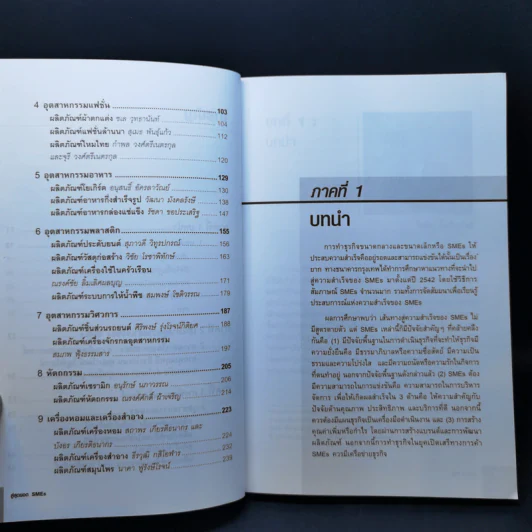 4 อุตสาหกรรมแฟชั่น 103
ผลิตภัณฑ์ผ้าตกแต่ง ชเล วุทธานันท์ 104
ผลิตภัณฑ์แฟชั่นล้านนา สุเมธ พันธุ์แก้ว 112
ผลิตภัณฑ์ไหมไทย กำพล วงศ์ศรีเนตรกุล
และจุรี วงศ์ศรีเนตรกุล 120
5 อุตสาหกรรมอาหาร 129
ผลิตภัณฑ์โยเกิร์ต อนุสนธิ์ อัครลาวัณย์ 130
ผลิตภัณฑ์อาหารกึ่งสำเร็จรูป วัฒนา มังคลรังษี 138
ผลิตภัณฑ์อาหารกล่องแช่แข็ง รัชดา ชอบประเสริฐ 147
6 อุตสาหกรรมพลาสติก 155
ผลิตภัณฑ์ประดับยนต์ สุภาวดี วิทูรปกรณ์ 156
ผลิตภัณฑ์วัสดุก่อสร้าง วิชัย โรชาพิทักษ์ 163
ผลิตภัณฑ์เครื่องใช้ในครัวเรือน
ณรงค์ชัย 171
ผลิตภัณฑ์ระบบการให้น้ำพืช สมพงษ์ โชติวรรณ 178
7 อุตสาหกรรมวิศวการ 187
ผลิตภัณฑ์ชิ้นส่วนรถยนต์ ศิริพงษ์ รุ่งโรจน์กิติยศ 197
ผลิตภัณฑ์เครื่องจักรกลอุตสาหกรรม
สมภพ ฟุ้งธรรมสาร
8 หัตถกรรม 205
ผลิตภัณฑ์เซรามิก อนุรักษ์ นภาวรรณ 206
ผลิตภัณฑ์หัตถกรรม ณรงค์ศักดิ์ 214
9 เครื่องหอมและเครื่องสำอาง 223
ผลิตภัณฑ์เครื่องหอม สถาพร เกียรติอนากร และ
บังอร เกียรติธนากร 224
ผลิตภัณฑ์เครื่องสำอาง ธีรวุฒิ
ผลิตภัณฑ์สมุนไพร นาคา ฟูรังษีโรจน์ 239
SMEs
ภาคที่ 1
บทนำ
การทำธุรกิจขนาดกลางและขนาดเล็กหรือ SMEs ให้
ประสบความสำเร็จคืออยู่รอดและสามารถแข่งขันได้นั้นเป็นเรื่อง
มาก ทางธนาคารกรุงเทพได้ทำการศึกษาหาแนวทางที่จะนำไป
สู่ความสำเร็จของ SMEs มาตั้งแต่ปี 2542 โดยใช้วิธีการ
สัมภาษณ์ SMEs จำนวนมาก รวมทั้งการจัดสัมมนาเพื่อเรียนรู้
ประสบการณ์แห่งความสำเร็จของ SMEs
ผลการศึกษาพบว่า เส้นทางสู่ความสำเร็จของ SMEs ไม่
มีสูตรตายตัว แต่ SMEs เหล่านี้ก็มีปัจจัยสำคัญๆ ที่คล้ายคลึง
กันคือ (1) มีปัจจัยพื้นฐานในการดำเนินธุรกิจที่จะทำให้ธุรกิจมี
ความยั่งยืนคือ มีธรรมาภิบาลหรือความซื่อสัตย์ มีความเป็น
ธรรมและความโปร่งใส และมีความถนัดหรือความรักในกิจการ
ที่ตนทำอยู่ นอกจากปัจจัยพื้นฐานดังกล่าวแล้ว (2) SMEs ต้อง
มีความสามารถในการแข่งขันคือ ความสามารถในการบริหาร
จัดการ เพื่อให้เกิดผลสำเร็จใน 3 ด้านคือ ให้ความสำคัญกับ
ปัจจัยด้านคุณภาพ ประสิทธิภาพ และบริการที่ดี นอกจากนี้
ควรต้องมีแผนธุรกิจเป็นเครื่องมือดำเนินงาน และ (3) การสร้าง
คุณค่าเพิ่มหรือกำไร โดยผ่านการสร้างแบรนด์และการพัฒนา
ผลิตภัณฑ์ นอกจากนี้การทำธุรกิจในยุคเปิดเสรีทางการค้า
SMEs ควรมีเครือข่ายธุรกิจ